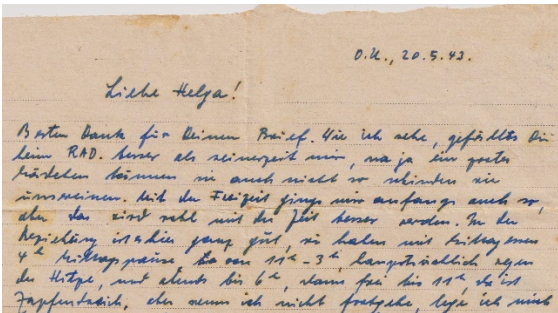 O.U., 20.5.43.
Liebe Helga!
Besten Dank für Deinen Brief. Wie ich sehe, gefällts Dir
beim RAD. besser als seinerzeit mir, na ja ein
Mädchen können sie auch nicht so schinden wie
unsereinen. Mit der Freizeit gings mir anfangs auch so,
aber das wird wohl mit der Zeit besser werden. In der
Beziehung ist es hier ganz gut, wir haben mit
4h Mittagspause von 11h - 3h, hauptsächlich wegen
der Hitze, und abends bis 6h, dann frei bis 11h, da ist
Zapfenstreich, aber wenn ich nicht fortgehe, lege ich mich